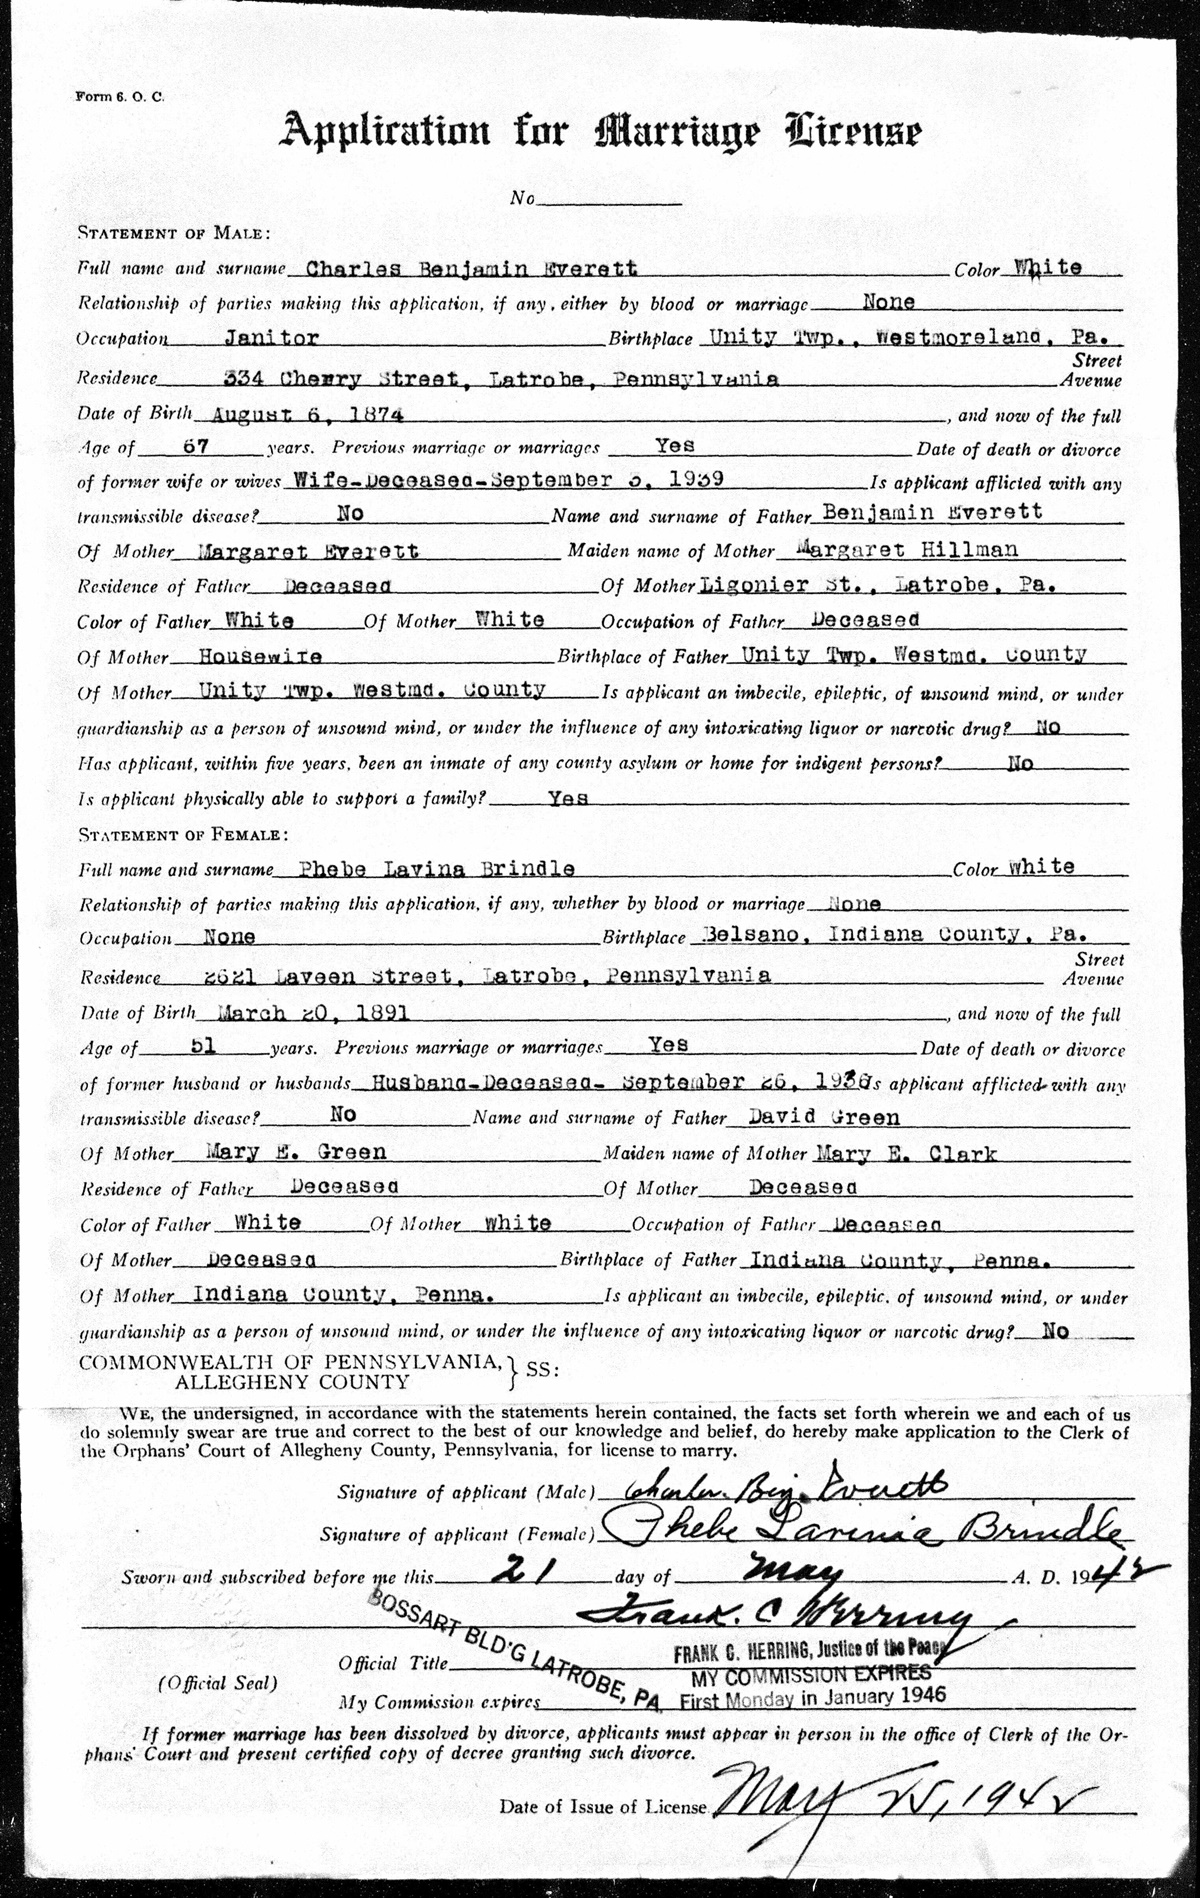 Form 6. O. C.
Application for Marriage License
No
STATEMENT OF MALE:
Full name and surname Charles Benjamin Everett Color White
Relationship of parties making this application, if any, either by blood or marriage None
Occupation Janitor Birthplace Unity Twp., Westmoreland, Pa.
Street
Residence 334 Cherry Street, Latrobe, Pennsylvania Avenue
Date of Birth August 6, 1874, and now of the full
Age of 67 years. Previous marriage or marriages Yes Date of death or divorce
of former wife or wives Wife-Deceased-September 3, 1939 Is applicant afflicted with any
transmissible disease? No Name and surname of Father Benjamin Everett
Of Mother Margaret Everett Maiden name of Mother Margaret Hillman
Residence of Father Deceased Of Mother Ligonier St., Latrobe, Pa.
Color of Father White Of Mother White Occupation of Father Deceased
Of Mother Housewife Birthplace of Father Unity Twp. Westmd. County
Of Mother Unity Twp. Westmd. County Is applicant an imbecile, epileptic, of unsound mind, or under
guardianship as a person of unsound mind, or under the influence of any intoxicating liquor or narcotic drug? No
Has applicant, within five years, been an inmate of any county asylum or home for indigent persons? No
Is applicant physically able to support a family? Yes
STATEMENT OF FEMALE:
Full name and surname Phebe Lavina Brindle Color White
Relationship of parties making this application, if any, whether by blood or marriage None
Occupation None Birthplace Belsano, Indiana County, Pa.
Street
Residence 2621 Laveen Street, Latrobe, Pennsylvania Avenue
Date of Birth March 20, 1891, and now of the full
Age of 51 years. Previous marriage or marriages Yes Date of death or divorce
of former husband or husbands Husband-Deceased- September 26, 1936 Is applicant afflicted with any
transmissible disease? No Name and surname of Father David Green
Of Mother Mary E. Green Maiden name of Mother Mary E. Clark
Residence of Father Deceased Of Mother Deceased
Color of Father White Of Mother White Occupation of Father Deceased
Of Mother Deceased Birthplace of Father Indiana County, Penna.
Of Mother Indiana County, Penna. Is applicant an imbecile, epileptic, of unsound mind, or under
guardianship as a person of unsound mind, or under the influence of any intoxicating liquor or narcotic drug? No
COMMONWEALTH OF PENNSYLVANIA,
ALLEGHENY COUNTY } SS:
WE, the undersigned, in accordance with the statements herein contained, the facts set forth wherein we and each of us
do solemnly swear are true and correct to the best of our knowledge and belief, do hereby make application to the Clerk of
the Orphans' Court of Allegheny County, Pennsylvania, for license to marry.
Signature of applicant (Male) Charles Benj. Everett
Signature of applicant (Female) Phebe Lavinia Brindle
Sworn and subscribed before me this 21 day of May A. D. 1942
Frank. C Herring
BOSSART BLD'G LATROBE, PA
Official Title FRANK C. HERRING, Justice of the Peace
(Official Seal) MY COMMISSION EXPIRES
My Commission expires First Monday in January 1946
If former marriage has been dissolved by divorce, applicants must appear in person in the office of Clerk of the Or-
phans' Court and present certified copy of decree granting such divorce.
Date of Issue of License May 25, 1942